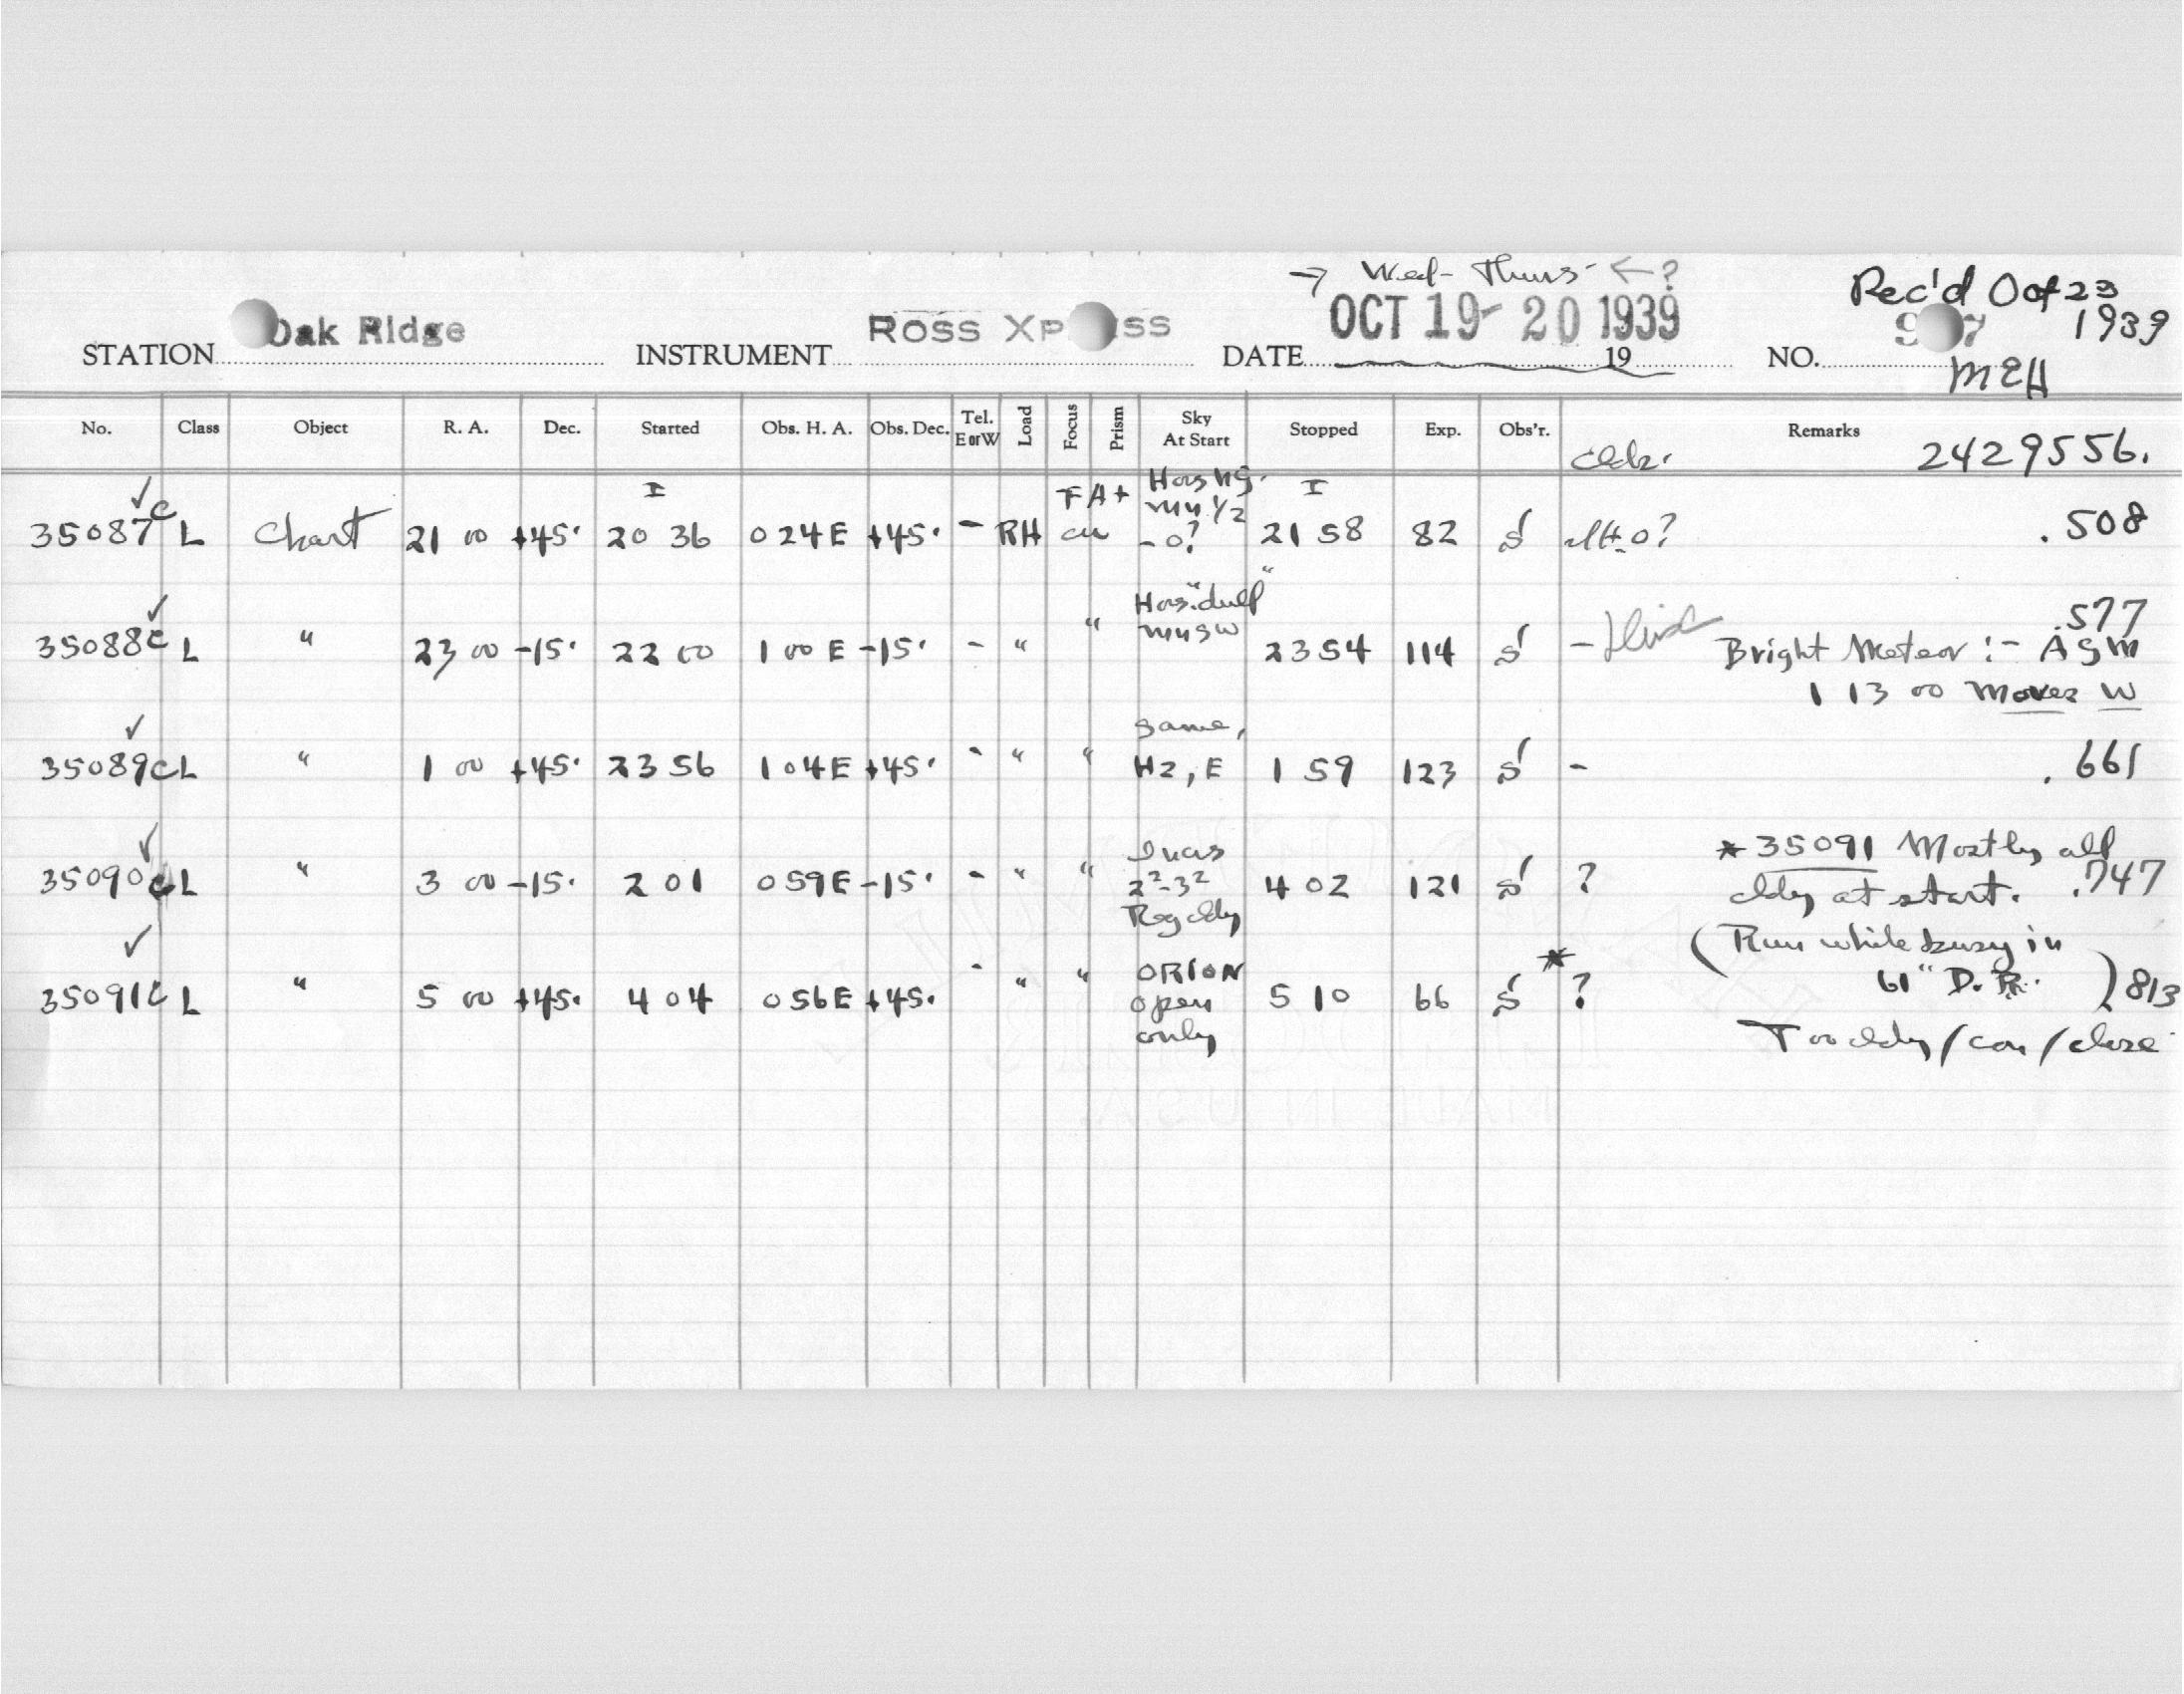 → Wed- Thurs- ←?
Rec'd Oct 23
1939
STATION Oak Ridge INSTRUMENT Ross Xp ss DATE OCT 19-20 1939 19 NO. 9 7
MEH
No. Class Object R. A. Dec. Started Obs. H. A. Obs. Dec. Tel. E or W Load Focus Prism Sky At Start Stopped Exp. Obs'r. Remarks
2429556.
35087 c L Chart 21 00 +45° I 20 36 0 24 E +45° - RH FA+ - 0? I 21 58 82 S .508
35088 c L " 23 00 -15° 22 00 1 00 E -15° - " " 23 54 114 S - .577
Bright Meteor :- ASM
1 13 00 Moves W
35089 c L " 1 00 +45° 23 56 1 04 E +45° - " " same, Hz, E 1 59 123 S - .661
35090 c L " 3 00 -15° 2 01 0 59 E -15° - " " 2²-3² 4 02 121 S ? .747
* 35091 Mostly all
cldy at start.
35091 c L " 5 00 +45° 4 04 0 56 E +45° - " " ORION open only 5 10 66 S * ? 813
(Run while busy in
61" D.R. )
Too cldy / con / close
MADE IN U.S.A.